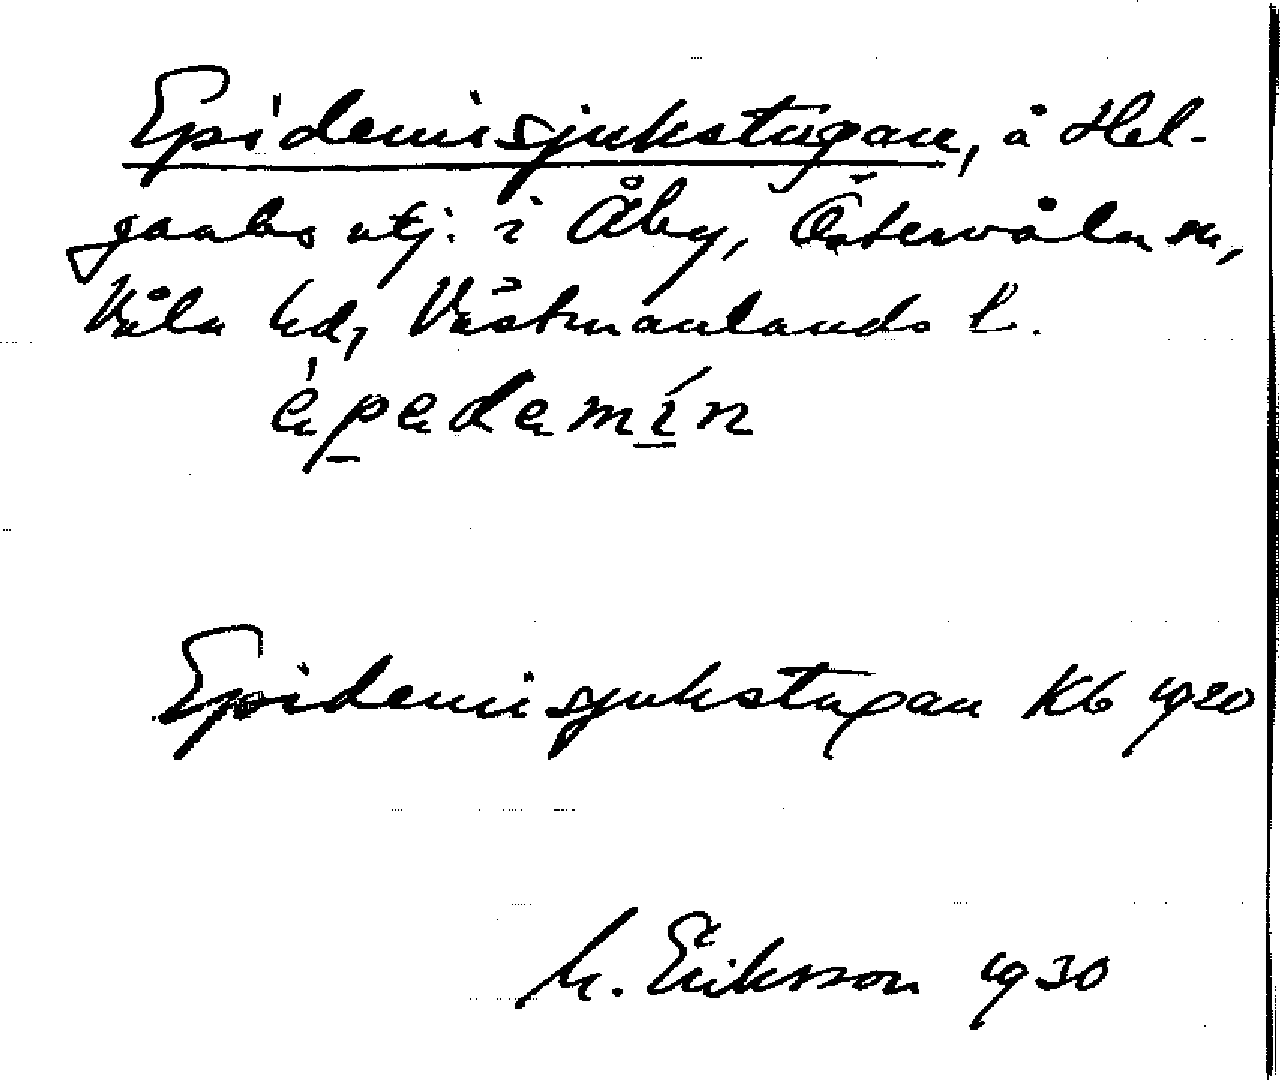 Epidemisjukstugan, å Hel-
gaabo utj. i Åby, Östervåla sn,
Våla hd, Västmanlands l.
èpedemín
Epidemisjukstugan Kb 1920
M. Eriksson 1930